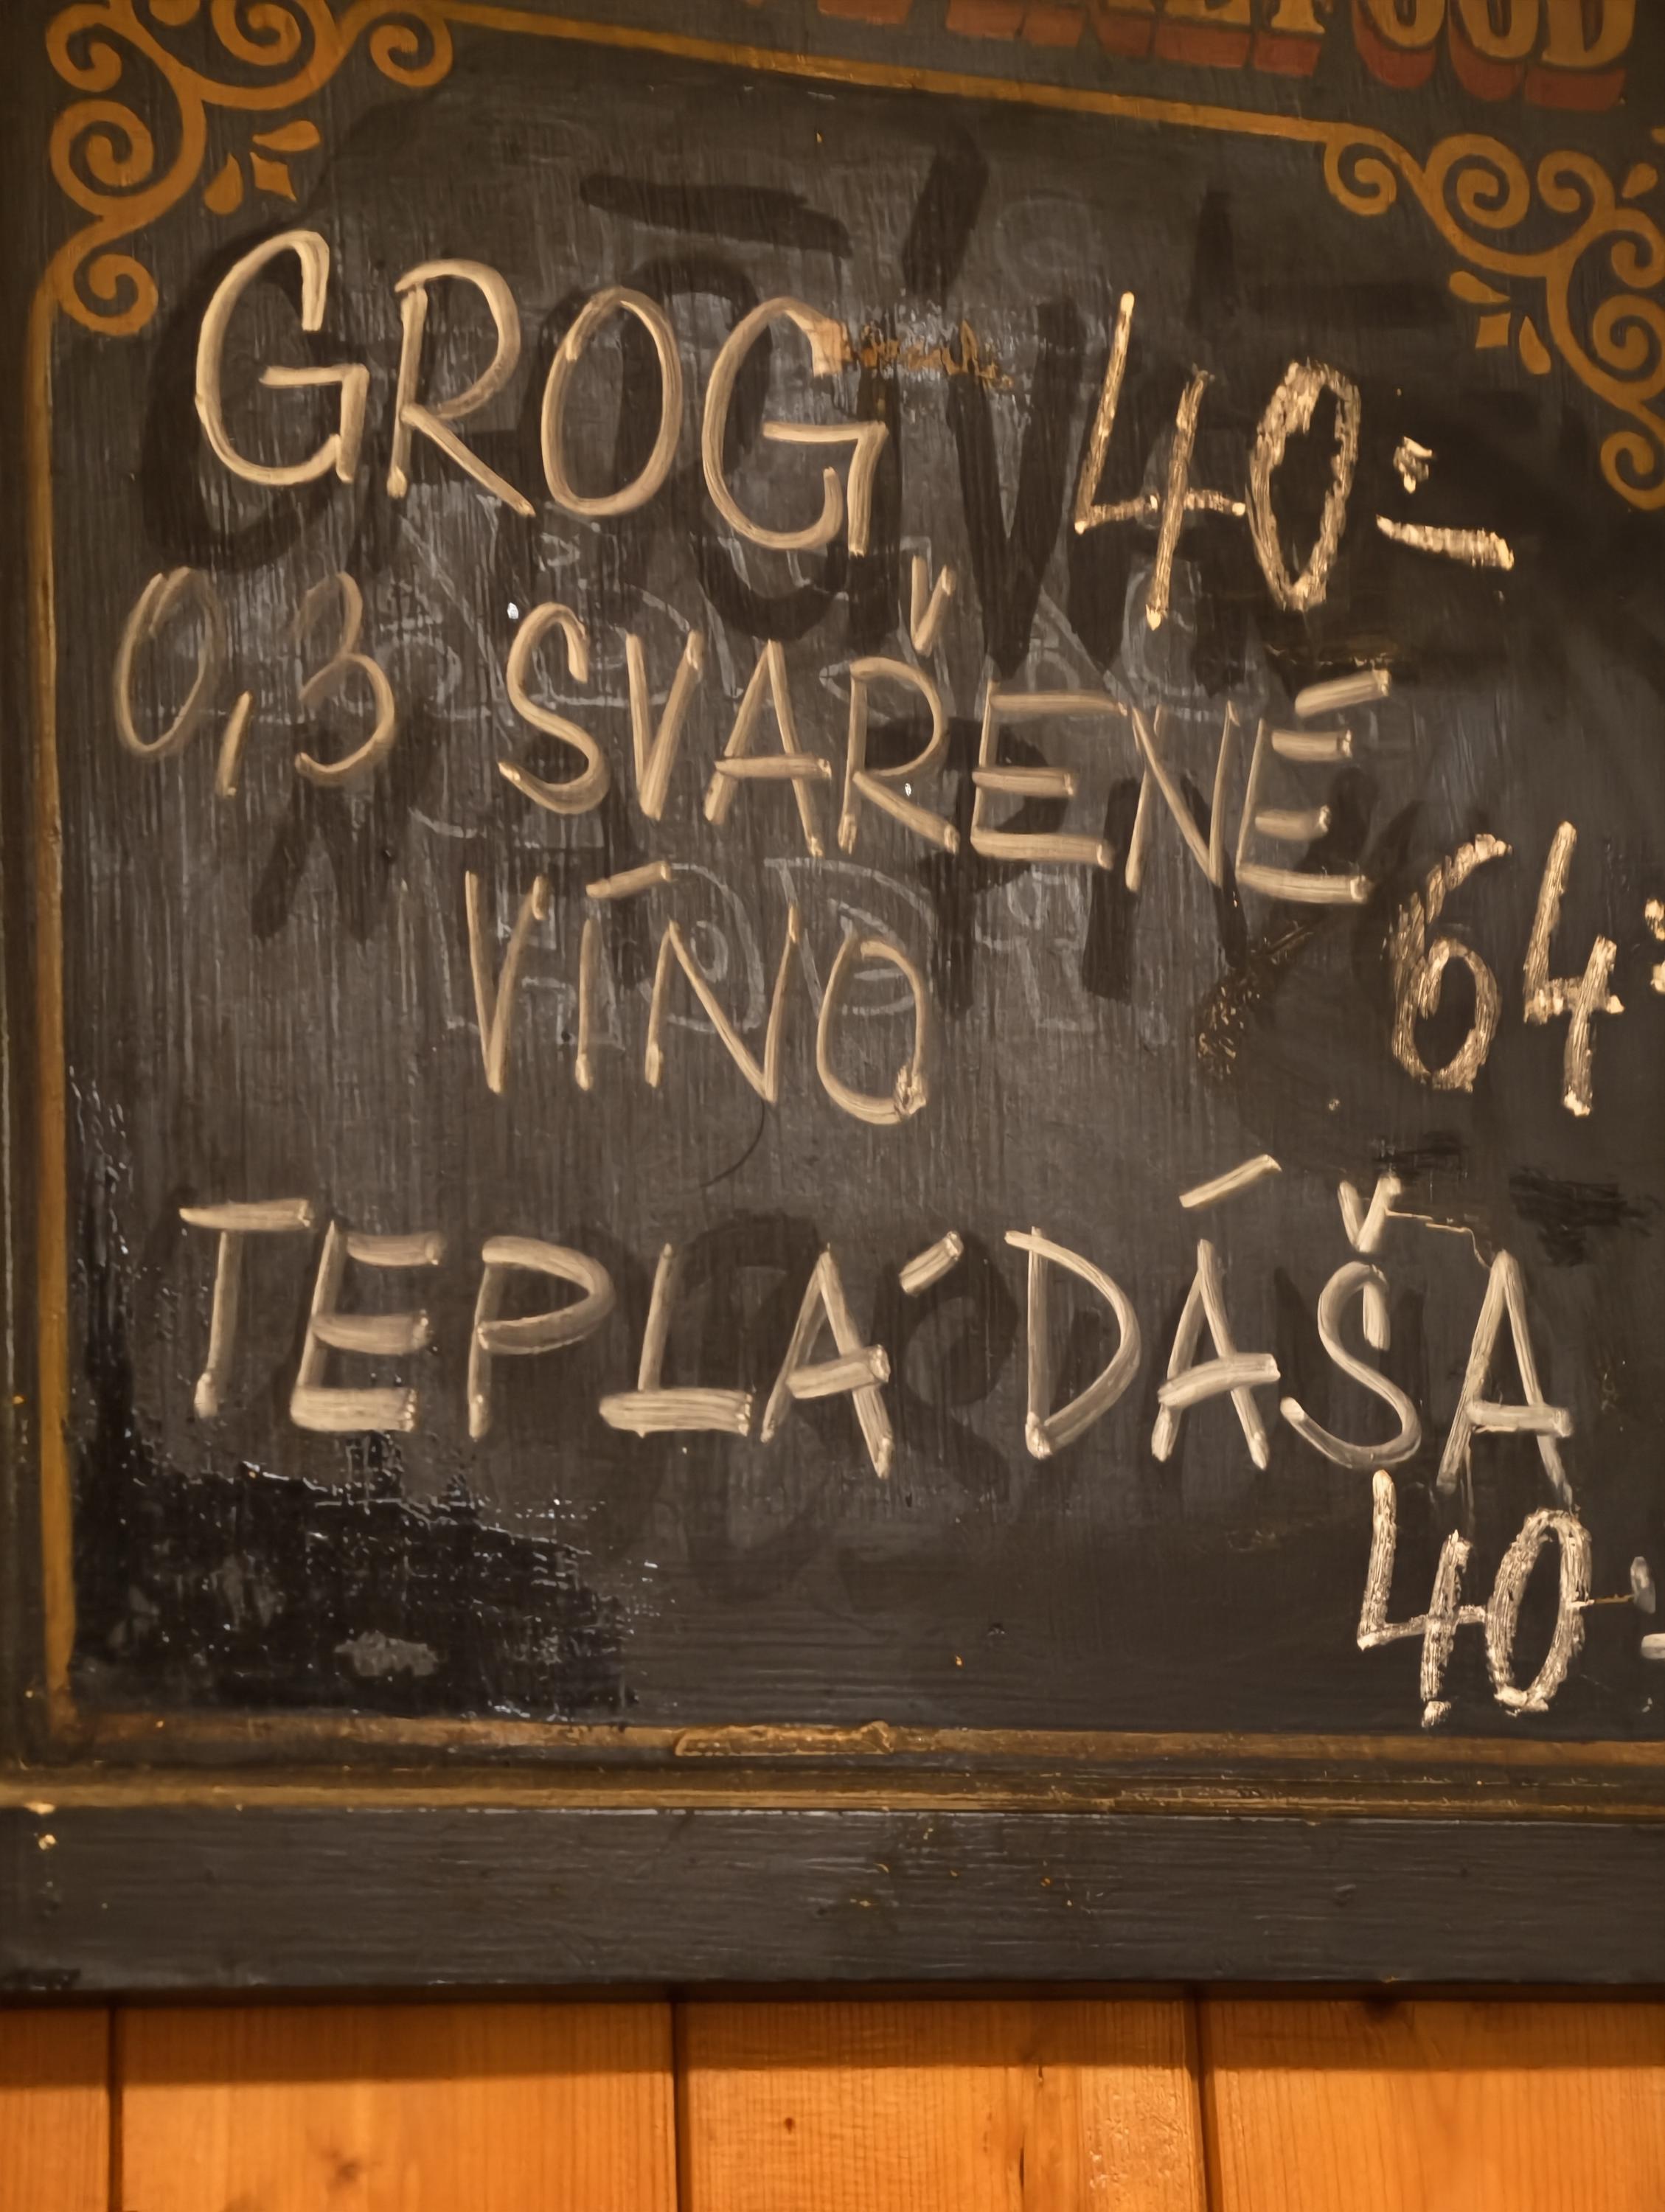 GROG 40:-
0,3 SVAŘENÉ
VÍNO 64:
TEPLÁ DÁŠA
40:-